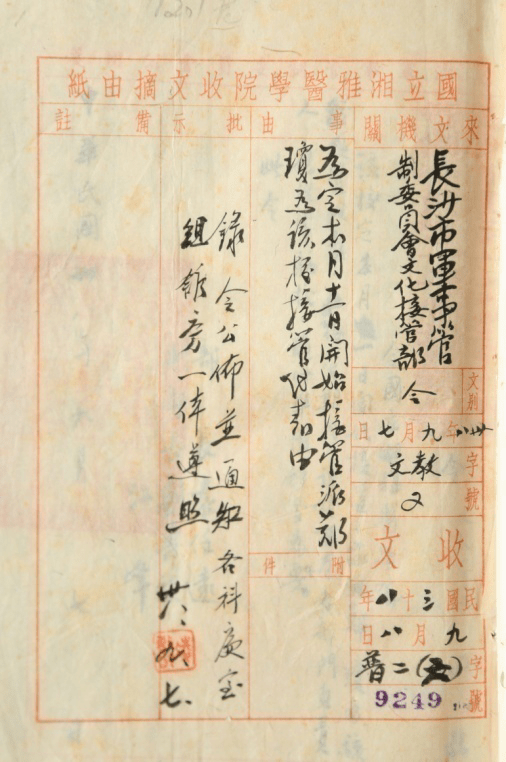 國立湘雅醫學院收文摘由紙
來文機關
長沙市軍事管
制委員會文化接管部
文別
令
卅八年九月七日
字號
文教
又
收文
民國三十八年
九月八日
字號
普二(五)
9249
事由
為定本月十一日開始接管派鄭
瓊為該校接管代表由
附件
批示
錄令公佈並通知各科處室
組館方一体遵照
卅八、九、七、
備註